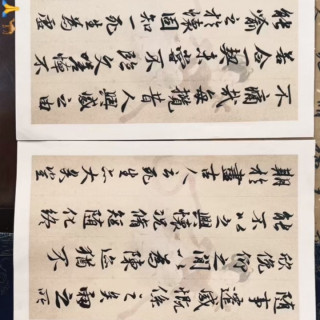 隨事遷感慨係之矣向之所
欣俛仰之間以為陳迹猶不
能不以之興懷況脩短隨化終
期於盡古人云死生亦大矣豈
不痛哉每攬昔人興感之由
若合一契未嘗不臨文嗟悼不
能喻之於懷固知一死生為虛